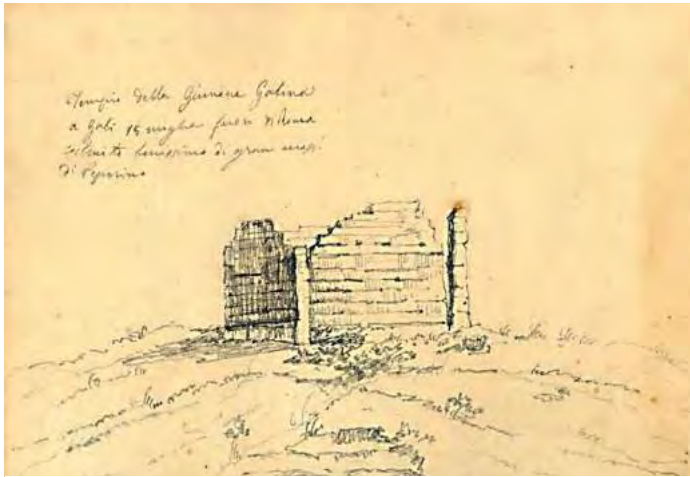 Tempio della Giunone Gabina
a Gabi 15 miglia fuori di Roma
benissimo di gran massi
di Peperino